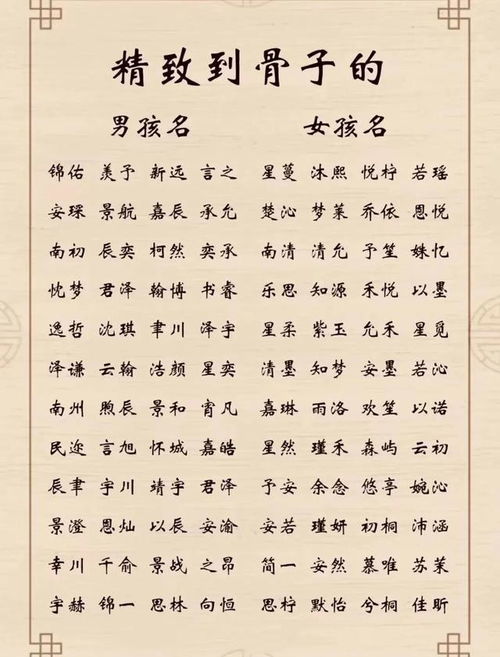 精致到骨子的
男孩名 女孩名
锦佑 羡予 新远 言之 星蔓 沐熙 悦柠 若瑶
安琛 景航 嘉辰 承允 楚沁 梦莱 乔依 恩悦
南初 辰奕 柯然 奕承 南清 清允 予笙 姝忆
忱梦 君泽 翰博 书睿 乐思 知源 禾悦 以墨
逸哲 沈琪 聿川 泽宇 星柔 紫玉 允禾 星觅
泽谦 云翰 浩颜 星奕 清墨 知梦 安墨 若沁
南州 煦辰 景和 宵凡 嘉琳 雨洛 欢笙 以诺
民迩 言旭 怀城 嘉皓 星然 瑾禾 森屿 云初
辰聿 宇川 靖宇 君泽 予安 余念 悠亭 婉沁
景澄 恩灿 以辰 安渝 安若 瑾妍 初桐 沛涵
幸川 千俞 景战 之昂 简一 安然 慕唯 苏茉
宇赫 锦一 思林 向恒 思柠 默怡 兮桐 佳昕